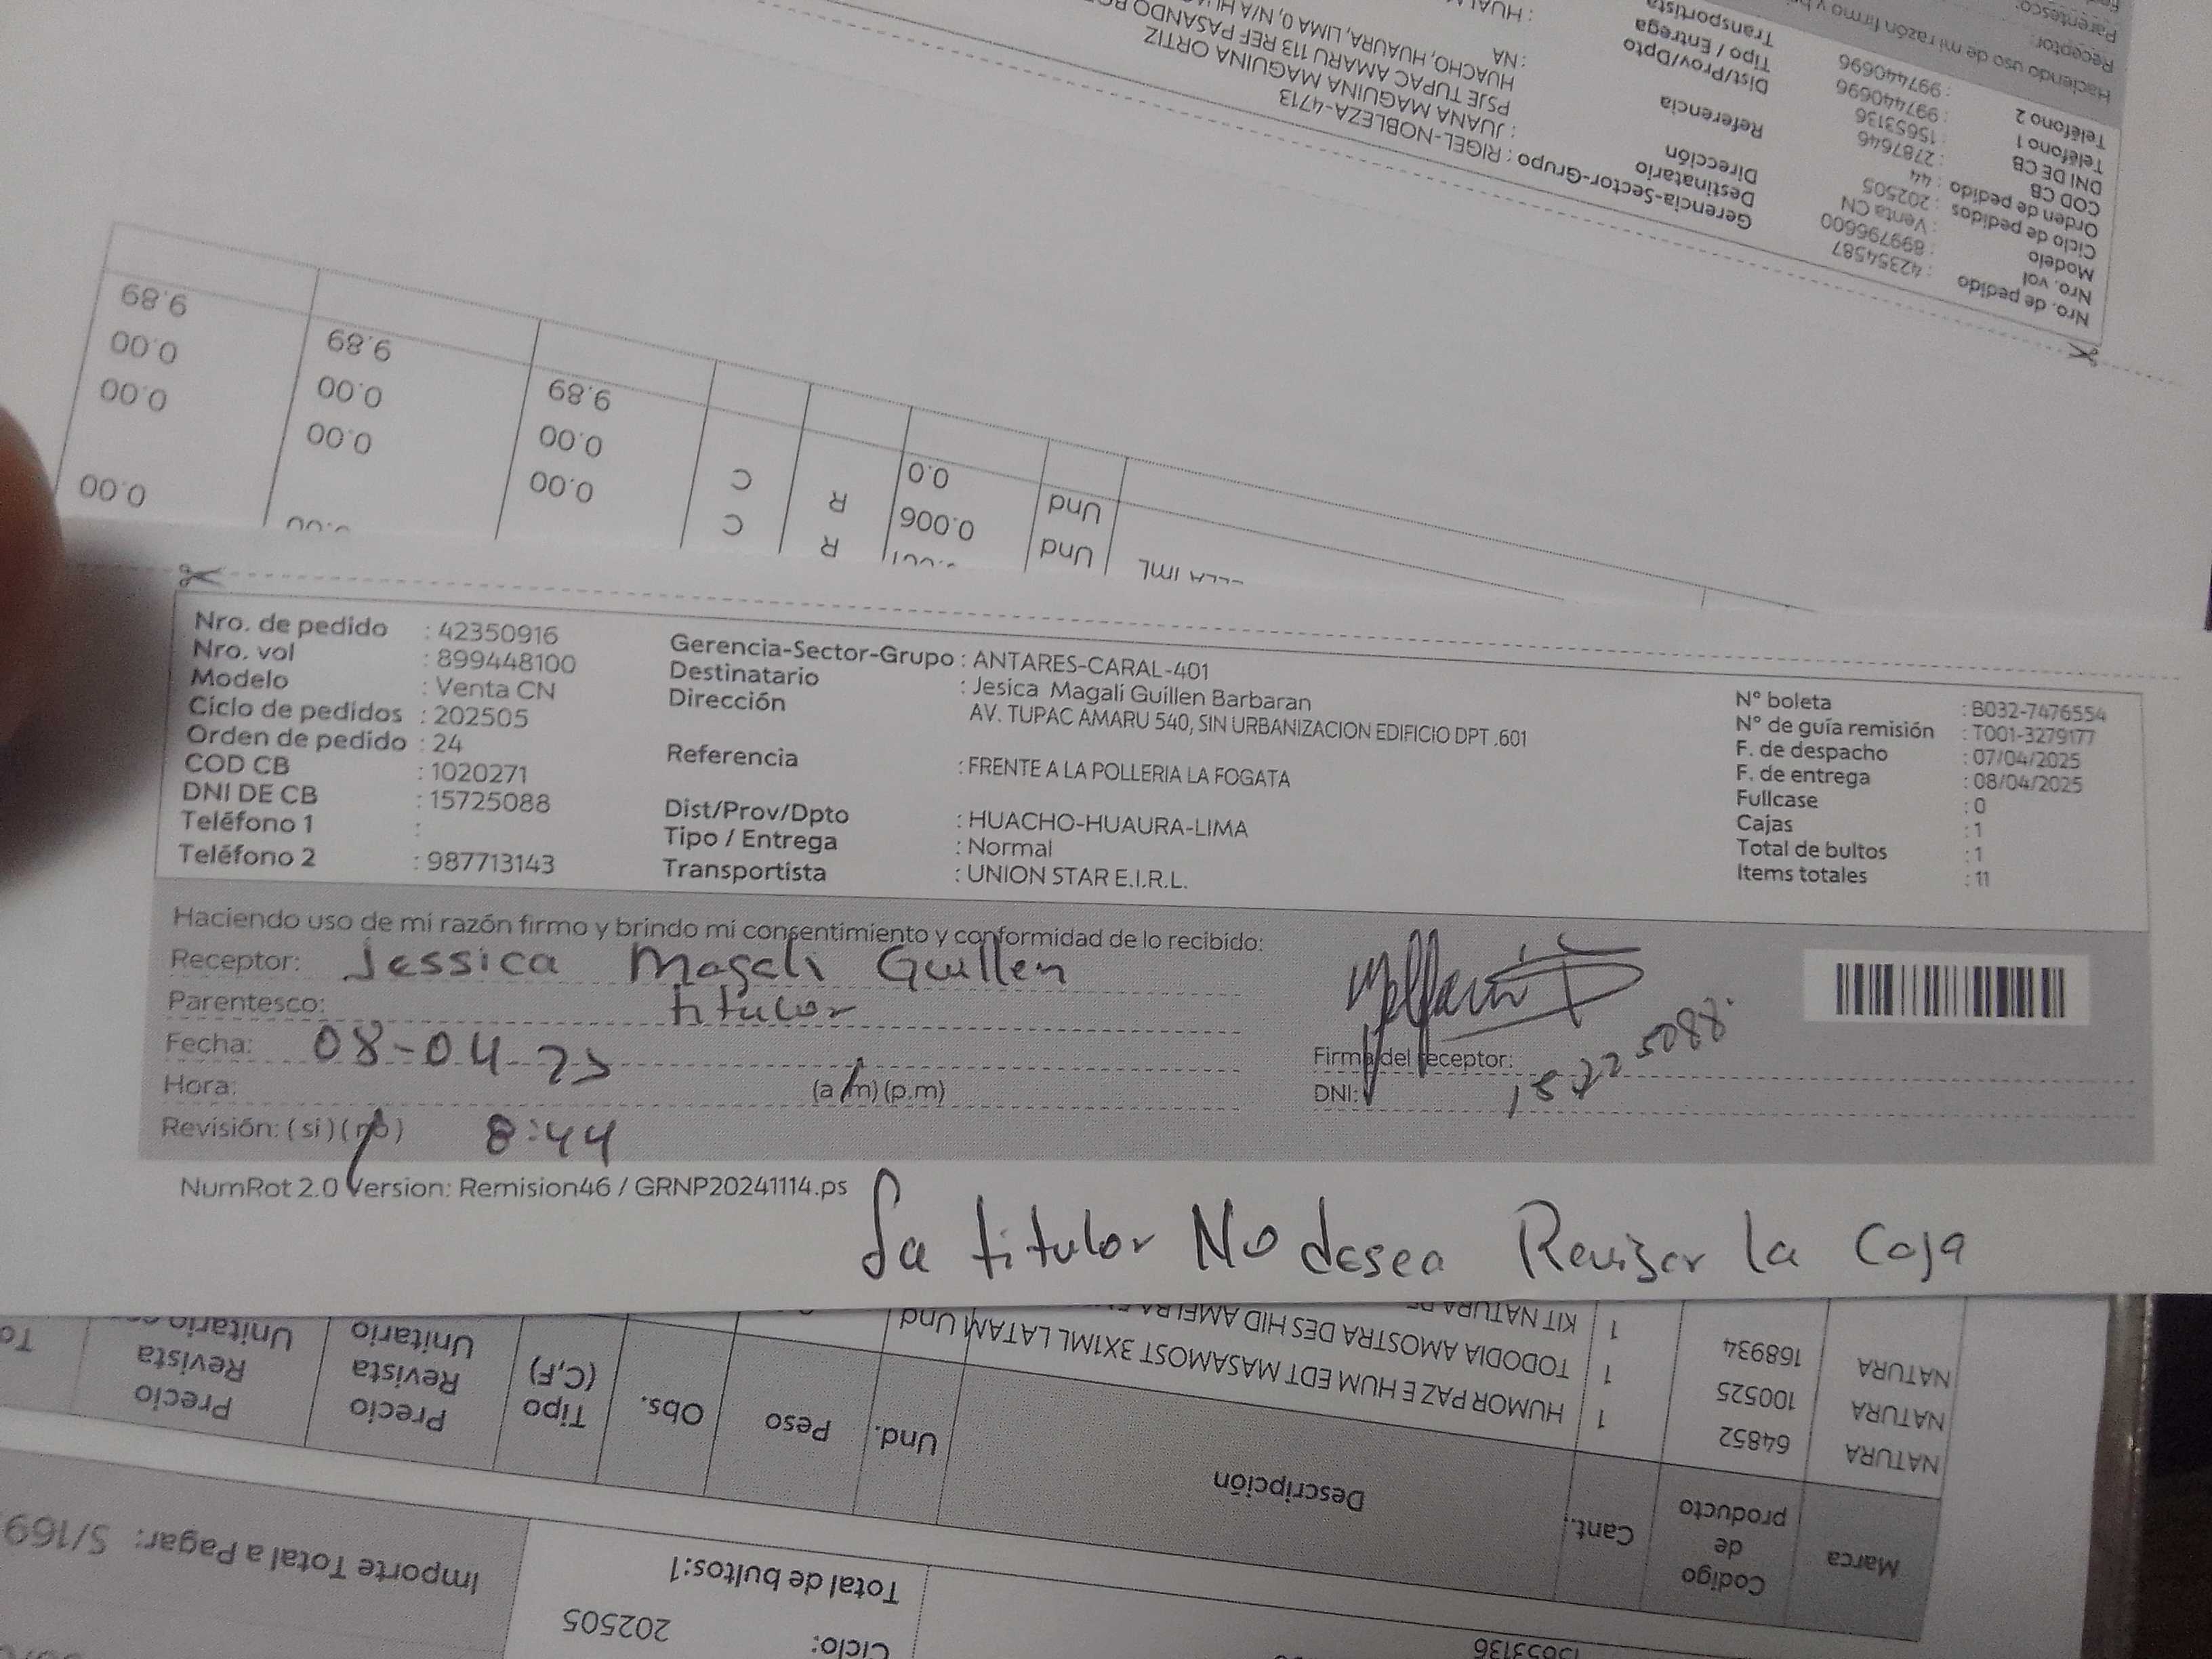 Nro. de pedido : 42354587
Nro. vol : 899796600
Modelo : Venta CN
Ciclo de pedidos : 202505
Orden de pedido : 44
COD CB : 2787646
DNI DE CB : 15653136
Teléfono 1 : 997440696
Teléfono 2 : 997440696
Gerencia-Sector-Grupo : RIGEL-NOBLEZA-4713
Destinatario : JUANA MAGUINA MAGUINA ORTIZ
Dirección PSJE TUPAC AMARU 113 REF PASANDO
HUACHO, HUAURA, LIMA 0, N/A
Referencia : NA
Dist/Prov/Dpto
Tipo / Entrega
Transportista
Haciendo uso de mi razón firmo y
Receptor:
Parentesco:
9.89 9.89 9.89
0.00 0.00 0.00
0.00 0.00 0.00
0.00
0.0 Und
0.006 Und
C R
C R
Nro. de pedido : 42350916
Nro. vol : 899448100
Modelo : Venta CN
Ciclo de pedidos : 202505
Orden de pedido : 24
COD CB : 1020271
DNI DE CB : 15725088
Teléfono 1 :
Teléfono 2 : 987713143
Gerencia-Sector-Grupo : ANTARES-CARAL-401
Destinatario : Jesica Magali Guillen Barbaran
Dirección AV. TUPAC AMARU 540, SIN URBANIZACION EDIFICIO DPT .601
Referencia : FRENTE A LA POLLERIA LA FOGATA
Dist/Prov/Dpto : HUACHO-HUAURA-LIMA
Tipo / Entrega : Normal
Transportista : UNION STAR E.I.R.L.
N° boleta : B032-7476554
N° de guía remisión : T001-3279177
F. de despacho : 07/04/2025
F. de entrega : 08/04/2025
Fullcase : 0
Cajas : 1
Total de bultos : 1
Items totales : 11
Haciendo uso de mi razón firmo y brindo mi consentimiento y conformidad de lo recibido:
Receptor: Jessica Magali Guillen
Parentesco: titular
Fecha: 08-04-25
Hora: (a.m) (p.m)
Revisión: (si) (no) 8:44
Firma del receptor:
DNI: 15725088
NumRot 2.0 Version: Remision46 / GRNP20241114.ps
La titular No desea Revisar la Caja
Importe Total a Pagar: S/169
Ciclo: 202505
Total de bultos:1
Marca Codigo de producto Cant. Descripción Und. Peso Obs. Tipo (C,F) Precio Revista Unitario Precio Revista Unitario
NATURA 64852 1 HUMOR PAZ E HUM EDT MASAMOST 3X1ML LATAM Und
NATURA 100525 1 TODODIA AMOSTRA DES HID
NATURA 168934 1 KIT NATURA